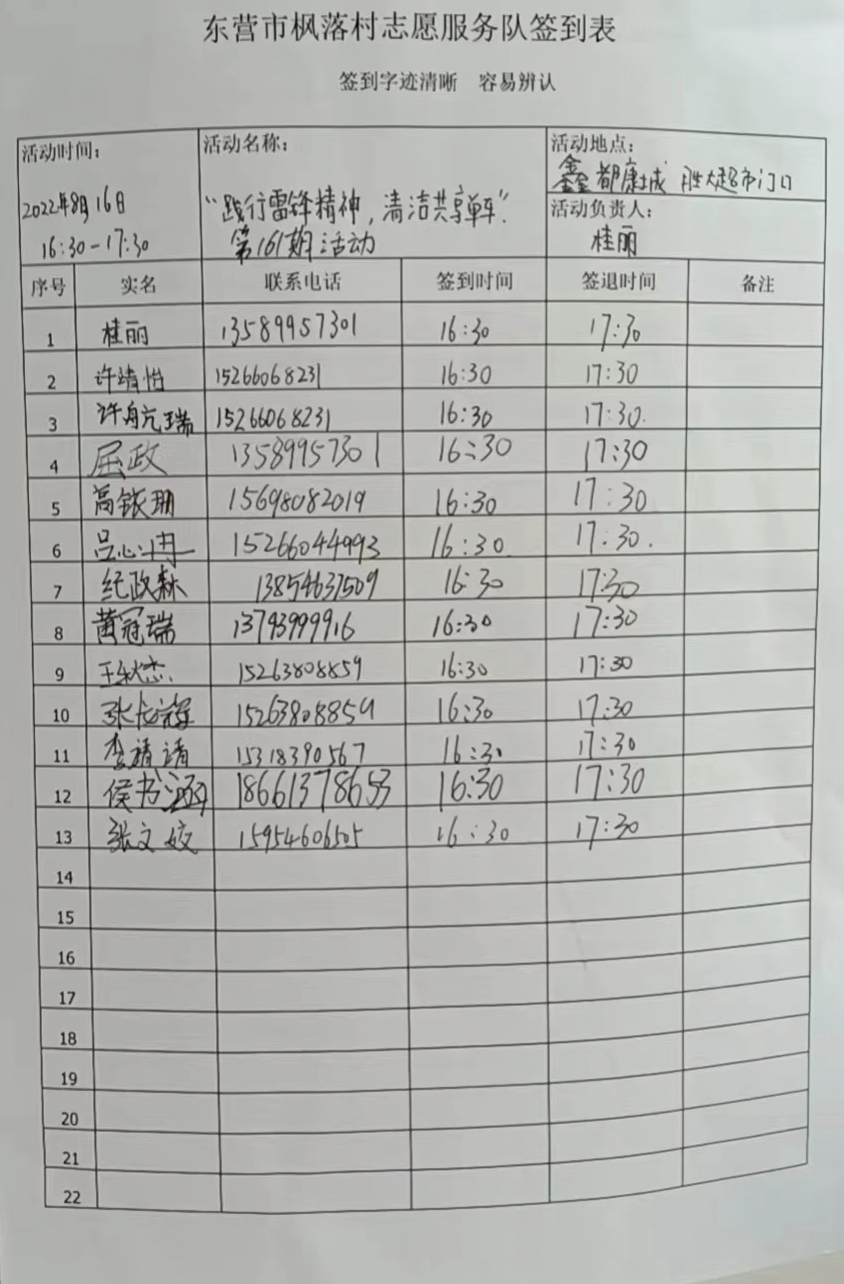 东营市枫落村志愿服务队签到表
签到字迹清晰 容易辨认
活动时间: 活动名称: 活动地点:
鑫都康城 胜大超市门口
2022年8月16日 "践行雷锋精神,清洁共享单车". 活动负责人:
16:30-17:30 第161期活动 桂丽
序号 实名 联系电话 签到时间 签退时间 备注
1 桂丽 13589957301 16:30 17:30
2 许靖怡 15266068231 16:30 17:30
3 许舟亢瑞 15266068231 16:30 17:30.
4 屈政 13589957301 16:30 17:30
5 高铱玥 15698082019 16:30 17:30
6 吕心冉 15266044993 16:30. 17:30.
7 纪政霖 13854637509 16:30 17:30
8 黄冠瑞 13793999916 16:30 17:30
9 王秋杰 15263808859 16:30 17:30
10 张 15263808859 16:30 17:30
11 李靖靖 15318390567 16:30 17:30
12 侯书涵 18661378653 16:30 17:30
13 张文姣 15954606505 16:30 17:30
14
15
16
17
18
19
20
21
22